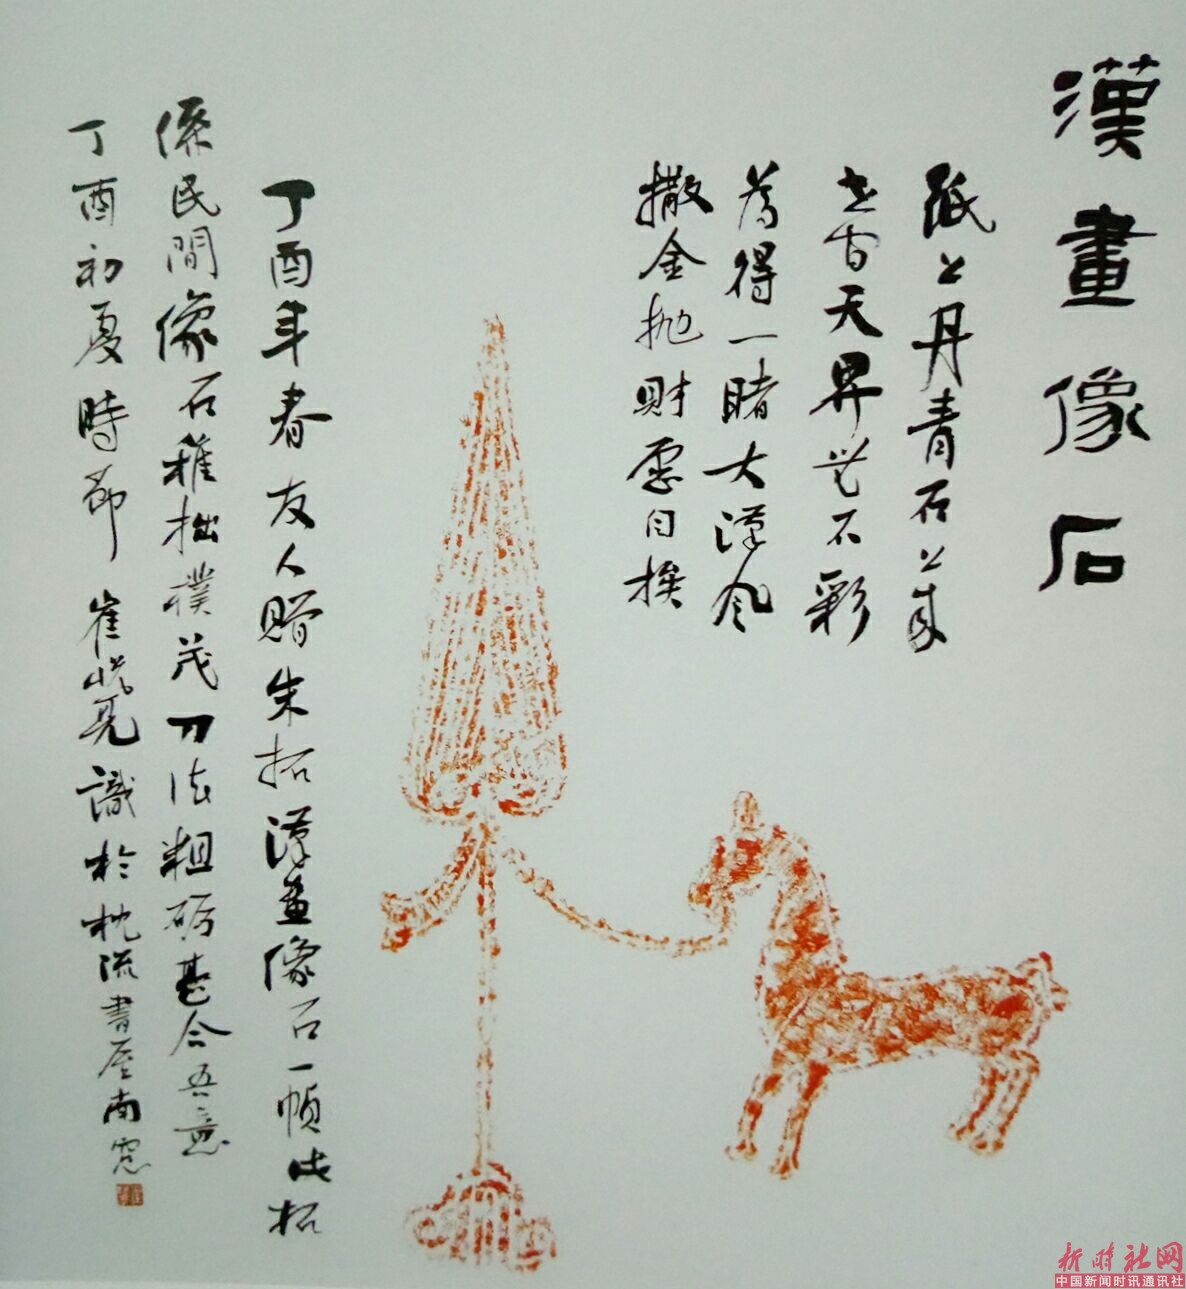 漢畫像石
紙上丹青石上來
天界 不彩
為得一睹大漢風
撒金拋財愿自挨
丁酉年春友人贈朱拓漢畫像石一幀此拓
係民間像石稚拙樸茂刀法粗砺甚合吾意
丁酉初夏時節崔 亮識於枕流書屋南窓
新时社网
中国新闻时讯通讯社